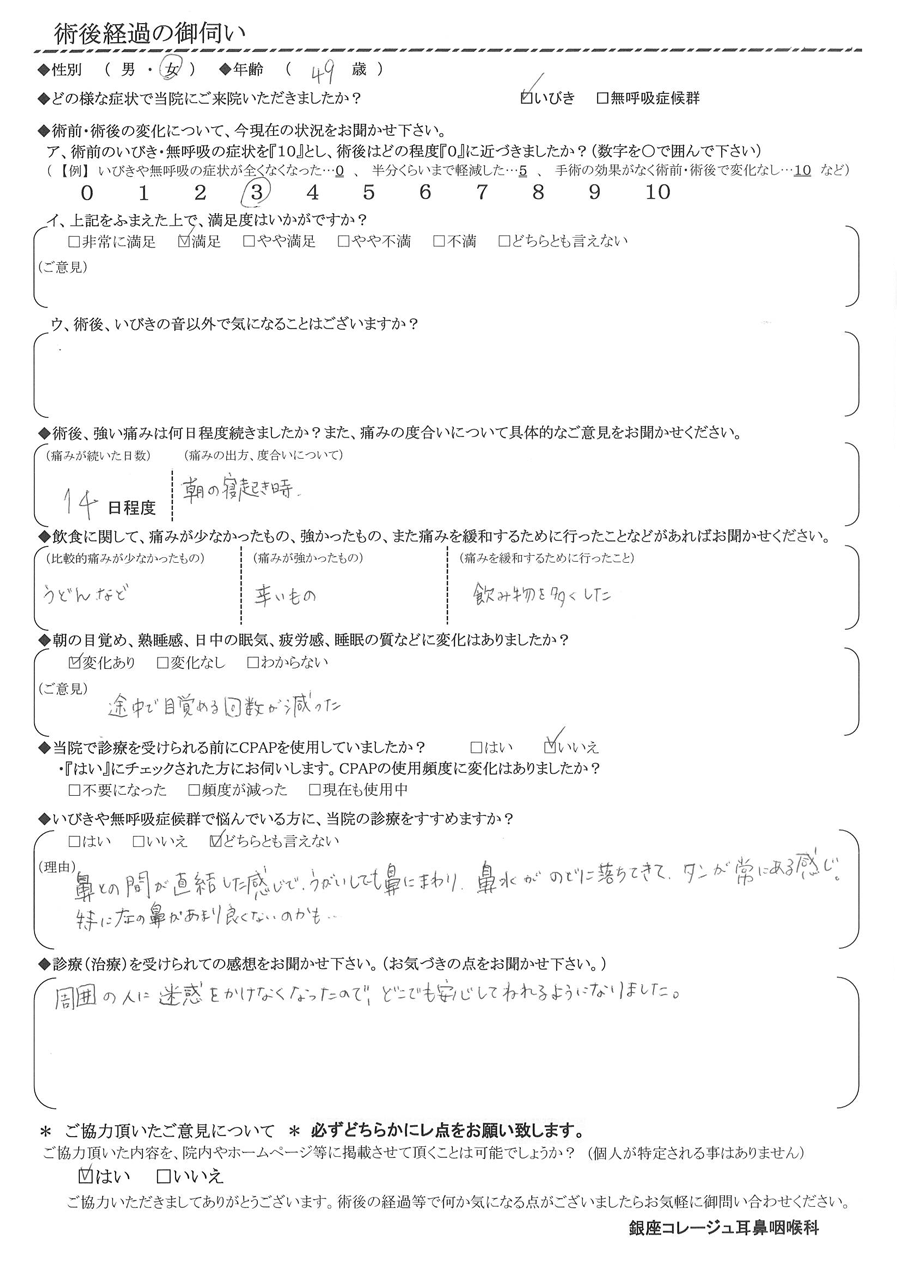 術後経過の御伺い
◆性別 ( 男 ・ 女 ) ◆年齢 ( 49 歳 )
◆どの様な症状で当院にご来院いただきましたか? ☑いびき □無呼吸症候群
◆術前・術後の変化について、今現在の状況をお聞かせ下さい。
ア、術前のいびき・無呼吸の症状を『10』とし、術後はどの程度『0』に近づきましたか?(数字を〇で囲んで下さい)
(【例】 いびきや無呼吸の症状が全くなくなった…0 、 半分くらいまで軽減した…5 、 手術の効果がなく術前・術後で変化なし…10 など)
0 1 2 3 4 5 6 7 8 9 10
イ、上記をふまえた上で、満足度はいかがですか?
□非常に満足 ☑満足 □やや満足 □やや不満 □不満 □どちらとも言えない
(ご意見)
ウ、術後、いびきの音以外で気になることはございますか?
◆術後、強い痛みは何日程度続きましたか?また、痛みの度合いについて具体的なご意見をお聞かせください。
(痛みが続いた日数) (痛みの出方、度合いについて)
14 日程度 朝の寝起き時.
◆飲食に関して、痛みが少なかったもの、強かったもの、また痛みを緩和するために行ったことなどがあればお聞かせください。
(比較的痛みが少なかったもの) (痛みが強かったもの) (痛みを緩和するために行ったこと)
うどんなど 辛いもの 飲み物を多くした
◆朝の目覚め、熟睡感、日中の眠気、疲労感、睡眠の質などに変化はありましたか?
☑変化あり □変化なし □わからない
(ご意見)
途中で目覚める回数が減った
◆当院で診療を受けられる前にCPAPを使用していましたか? □はい ☑いいえ
・『はい』にチェックされた方にお伺いします。CPAPの使用頻度に変化はありましたか?
□不要になった □頻度が減った □現在も使用中
◆いびきや無呼吸症候群で悩んでいる方に、当院の診療をすすめますか?
□はい □いいえ ☑どちらとも言えない
(理由)
鼻との間が直結した感じで、うがいしても鼻にまわり、鼻水がのどに落ちてきて、タンが常にある感じ。
特に左の鼻があまり良くないのかも…
◆診療(治療)を受けられての感想をお聞かせ下さい。(お気づきの点をお聞かせ下さい。)
周囲の人に迷惑をかけなくなったので、どこでも安心してねれるようになりました。
＊ ご協力頂いたご意見について ＊ 必ずどちらかにレ点をお願い致します。
ご協力頂いた内容を、院内やホームページ等に掲載させて頂くことは可能でしょうか? (個人が特定される事はありません)
☑はい □いいえ
ご協力いただきましてありがとうございます。術後の経過等で何か気になる点がございましたらお気軽に御問い合わせください。
銀座コレージュ耳鼻咽喉科